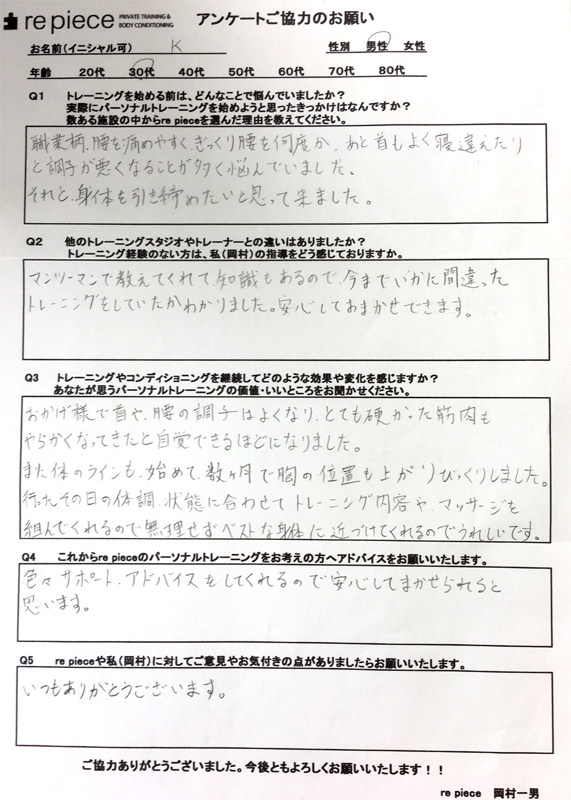 re piece PRIVATE TRAINING & BODY CONDITIONING アンケートご協力のお願い
お名前(イニシャル可) K 性別 男性 女性
年齢 20代 30代 40代 50代 60代 70代 80代
Q1 トレーニングを始める前は、どんなことで悩んでいましたか?
実際にパーソナルトレーニングを始めようと思ったきっかけはなんですか?
数ある施設の中からre pieceを選んだ理由を教えてください。
職業柄、腰を痛めやすく、ぎっくり腰を何度か、あと首もよく寝違えたり
と調子が悪くなることが多く悩んでいました。
それと、身体を引き締めたいと思って来ました。
Q2 他のトレーニングスタジオやトレーナーとの違いはありましたか?
トレーニング経験のない方は、私(岡村)の指導をどう感じておりますか。
マンツーマンで教えてくれて、知識もあるので、今までいかに間違った
トレーニングをしていたかわかりました。安心しておまかせできます。
Q3 トレーニングやコンディショニングを継続してどのような効果や変化を感じますか?
あなたが思うパーソナルトレーニングの価値・いいところをお聞かせください。
おかげ様で首や、腰の調子はよくなり、とても硬かった筋肉も
やらかくなってきたと自覚できるほどになりました。
また体のラインも、始めて、数ヶ月で胸の位置も上がりびっくりしました。
行ったその日の体調、状態に合わせて、トレーニング内容や、マッサージを
組んでくれるので無理せずベストな身体に近づけてくれるのでうれしいです。
Q4 これからre pieceのパーソナルトレーニングをお考えの方へアドバイスをお願いいたします。
色々サポート、アドバイスをしてくれるので安心してまかせられると
思います。
Q5 re pieceや私(岡村)に対してご意見やお気付きの点がありましたらお願いいたします。
いつもありがとうございます。
ご協力ありがとうございました。今後ともよろしくお願いいたします!!
re piece 岡村一男